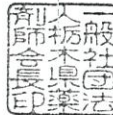 一般社団法
人栃木県薬
剤師会長印